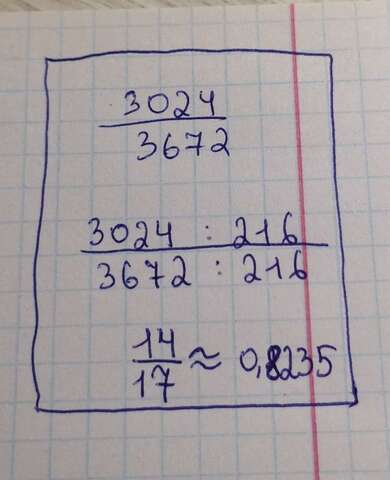 3024
3672
3024 : 216
3672 : 216
14
17
≈ 0,8235